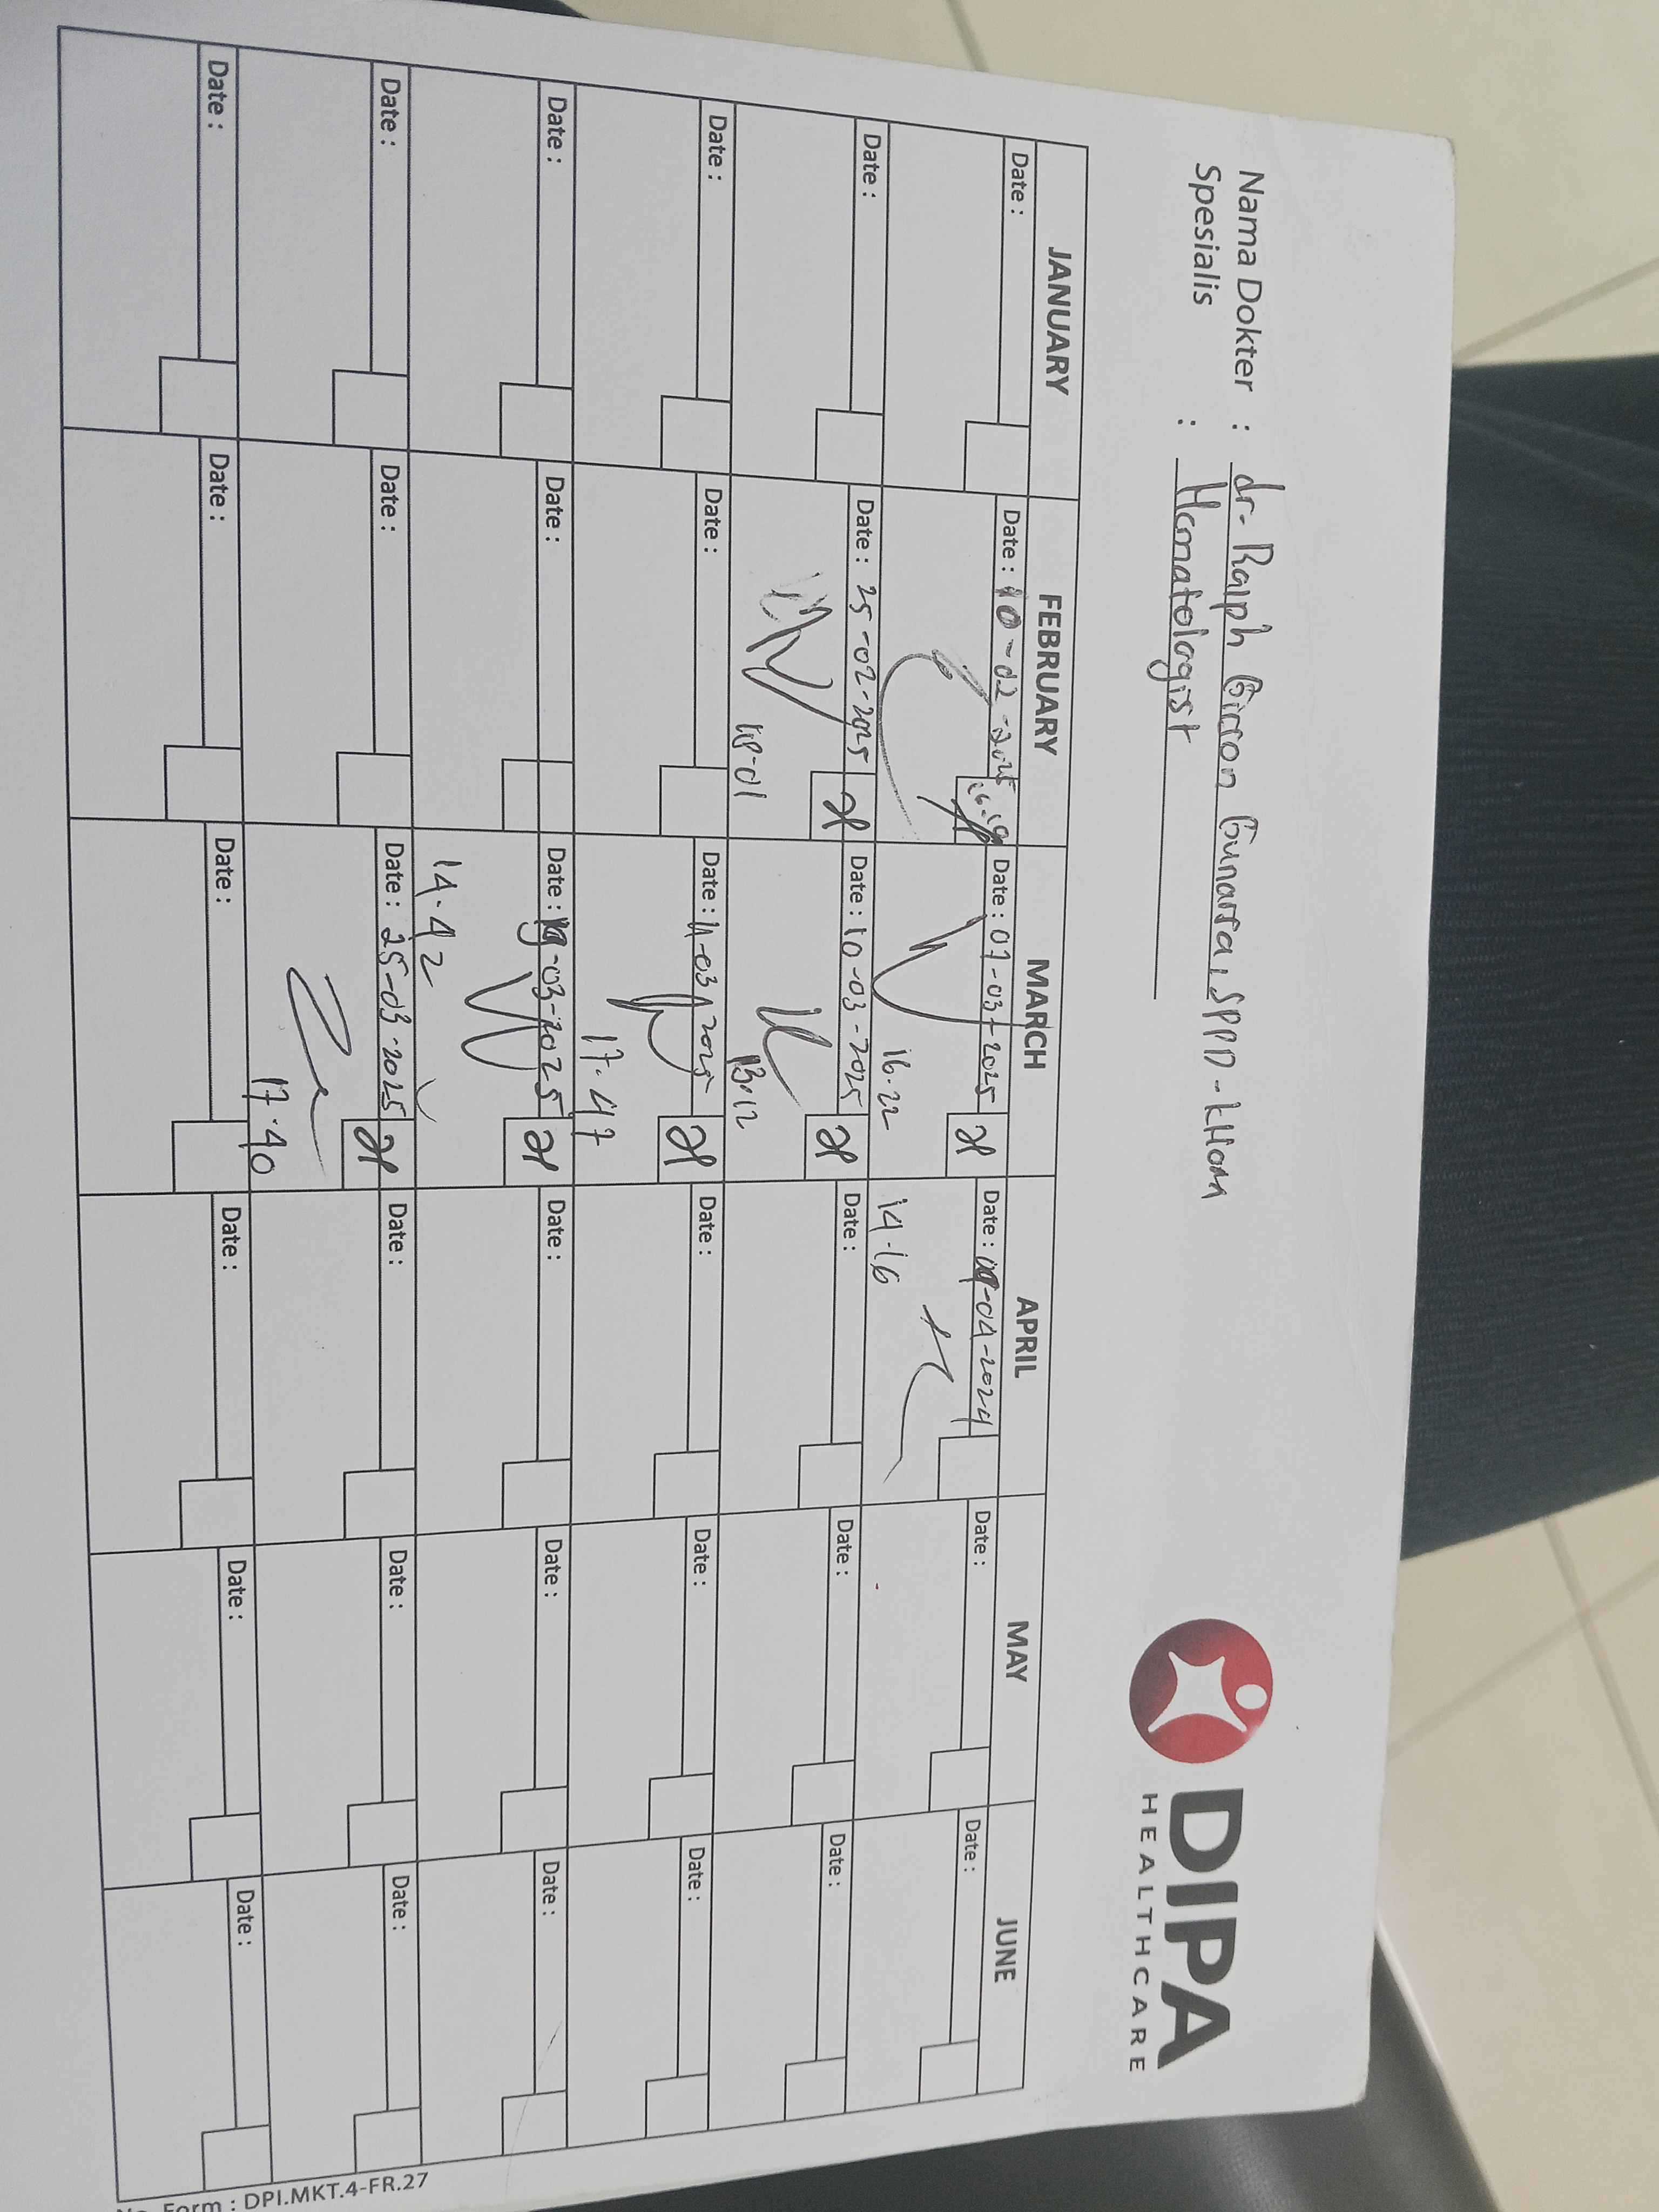 Nama Dokter : dr. Ralph Girson Gunarsa, SPPD - KHom
Spesialis : Hematologist
DIPA
HEALTHCARE
JANUARY FEBRUARY MARCH APRIL MAY JUNE
Date : Date : 10-02-2025 16.19 Date : 07-03-2025 Date : 09-04-2024 Date : Date :
16.22 14.16
Date : Date : 25-02-2025 Date : 10-03-2025 Date : Date : Date :
18-01 13.12
Date : Date : Date : 11-03-2025 Date : Date : Date :
17.47
Date : Date : Date : 19-03-2025 Date : Date : Date :
14.42
Date : Date : Date : 25-03-2025 Date : Date : Date :
17.40
Date : Date : Date : Date : Date : Date :
Form : DPI.MKT.4-FR.27